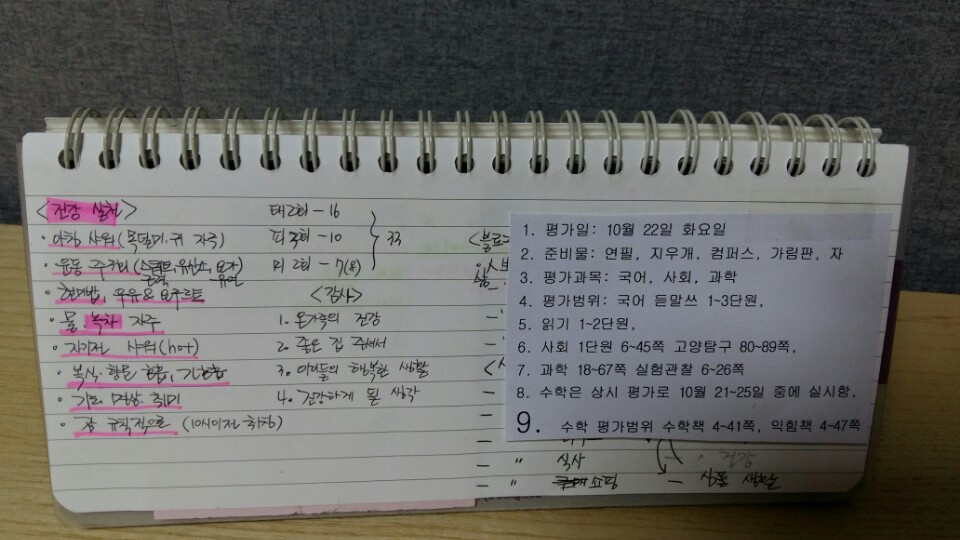 <건강 실천>
· 아침 샤워(목덜미·귀 자주)
· 운동 주2회(스트레트, 유산소, 요가)
근력 유연
· 현미밥, 우유&요구르트
· 물·녹차 자주
· 자기전 샤워(hot)
· 복식·항문 호흡,
· 기도 명상 취미
· 잠 규칙적으로 (10시이전 취침)
태2회-16
피 회-10
외 2회-7(8)
33
<감사>
1. 온가족의 건강
2. 좋은 집 주셔서
3. 아이들의 행복한 생활
4. 건강하게 된 생각
<블로
1. 평가일: 10월 22일 화요일
2. 준비물: 연필, 지우개, 컴퍼스, 가림판, 자
3. 평가과목: 국어, 사회, 과학
4. 평가범위: 국어 듣말쓰 1-3단원,
5. 읽기 1-2단원,
6. 사회 1단원 6-45쪽 고양탐구 80-89쪽,
7. 과학 18-67쪽 실험관찰 6-26쪽
8. 수학은 상시 평가로 10월 21-25일 중에 실시함.
9. 수학 평가범위 수학책 4-41쪽, 익힘책 4-47쪽
- · 건강
- " 식사
- " 쇼핑 - 상품 생활